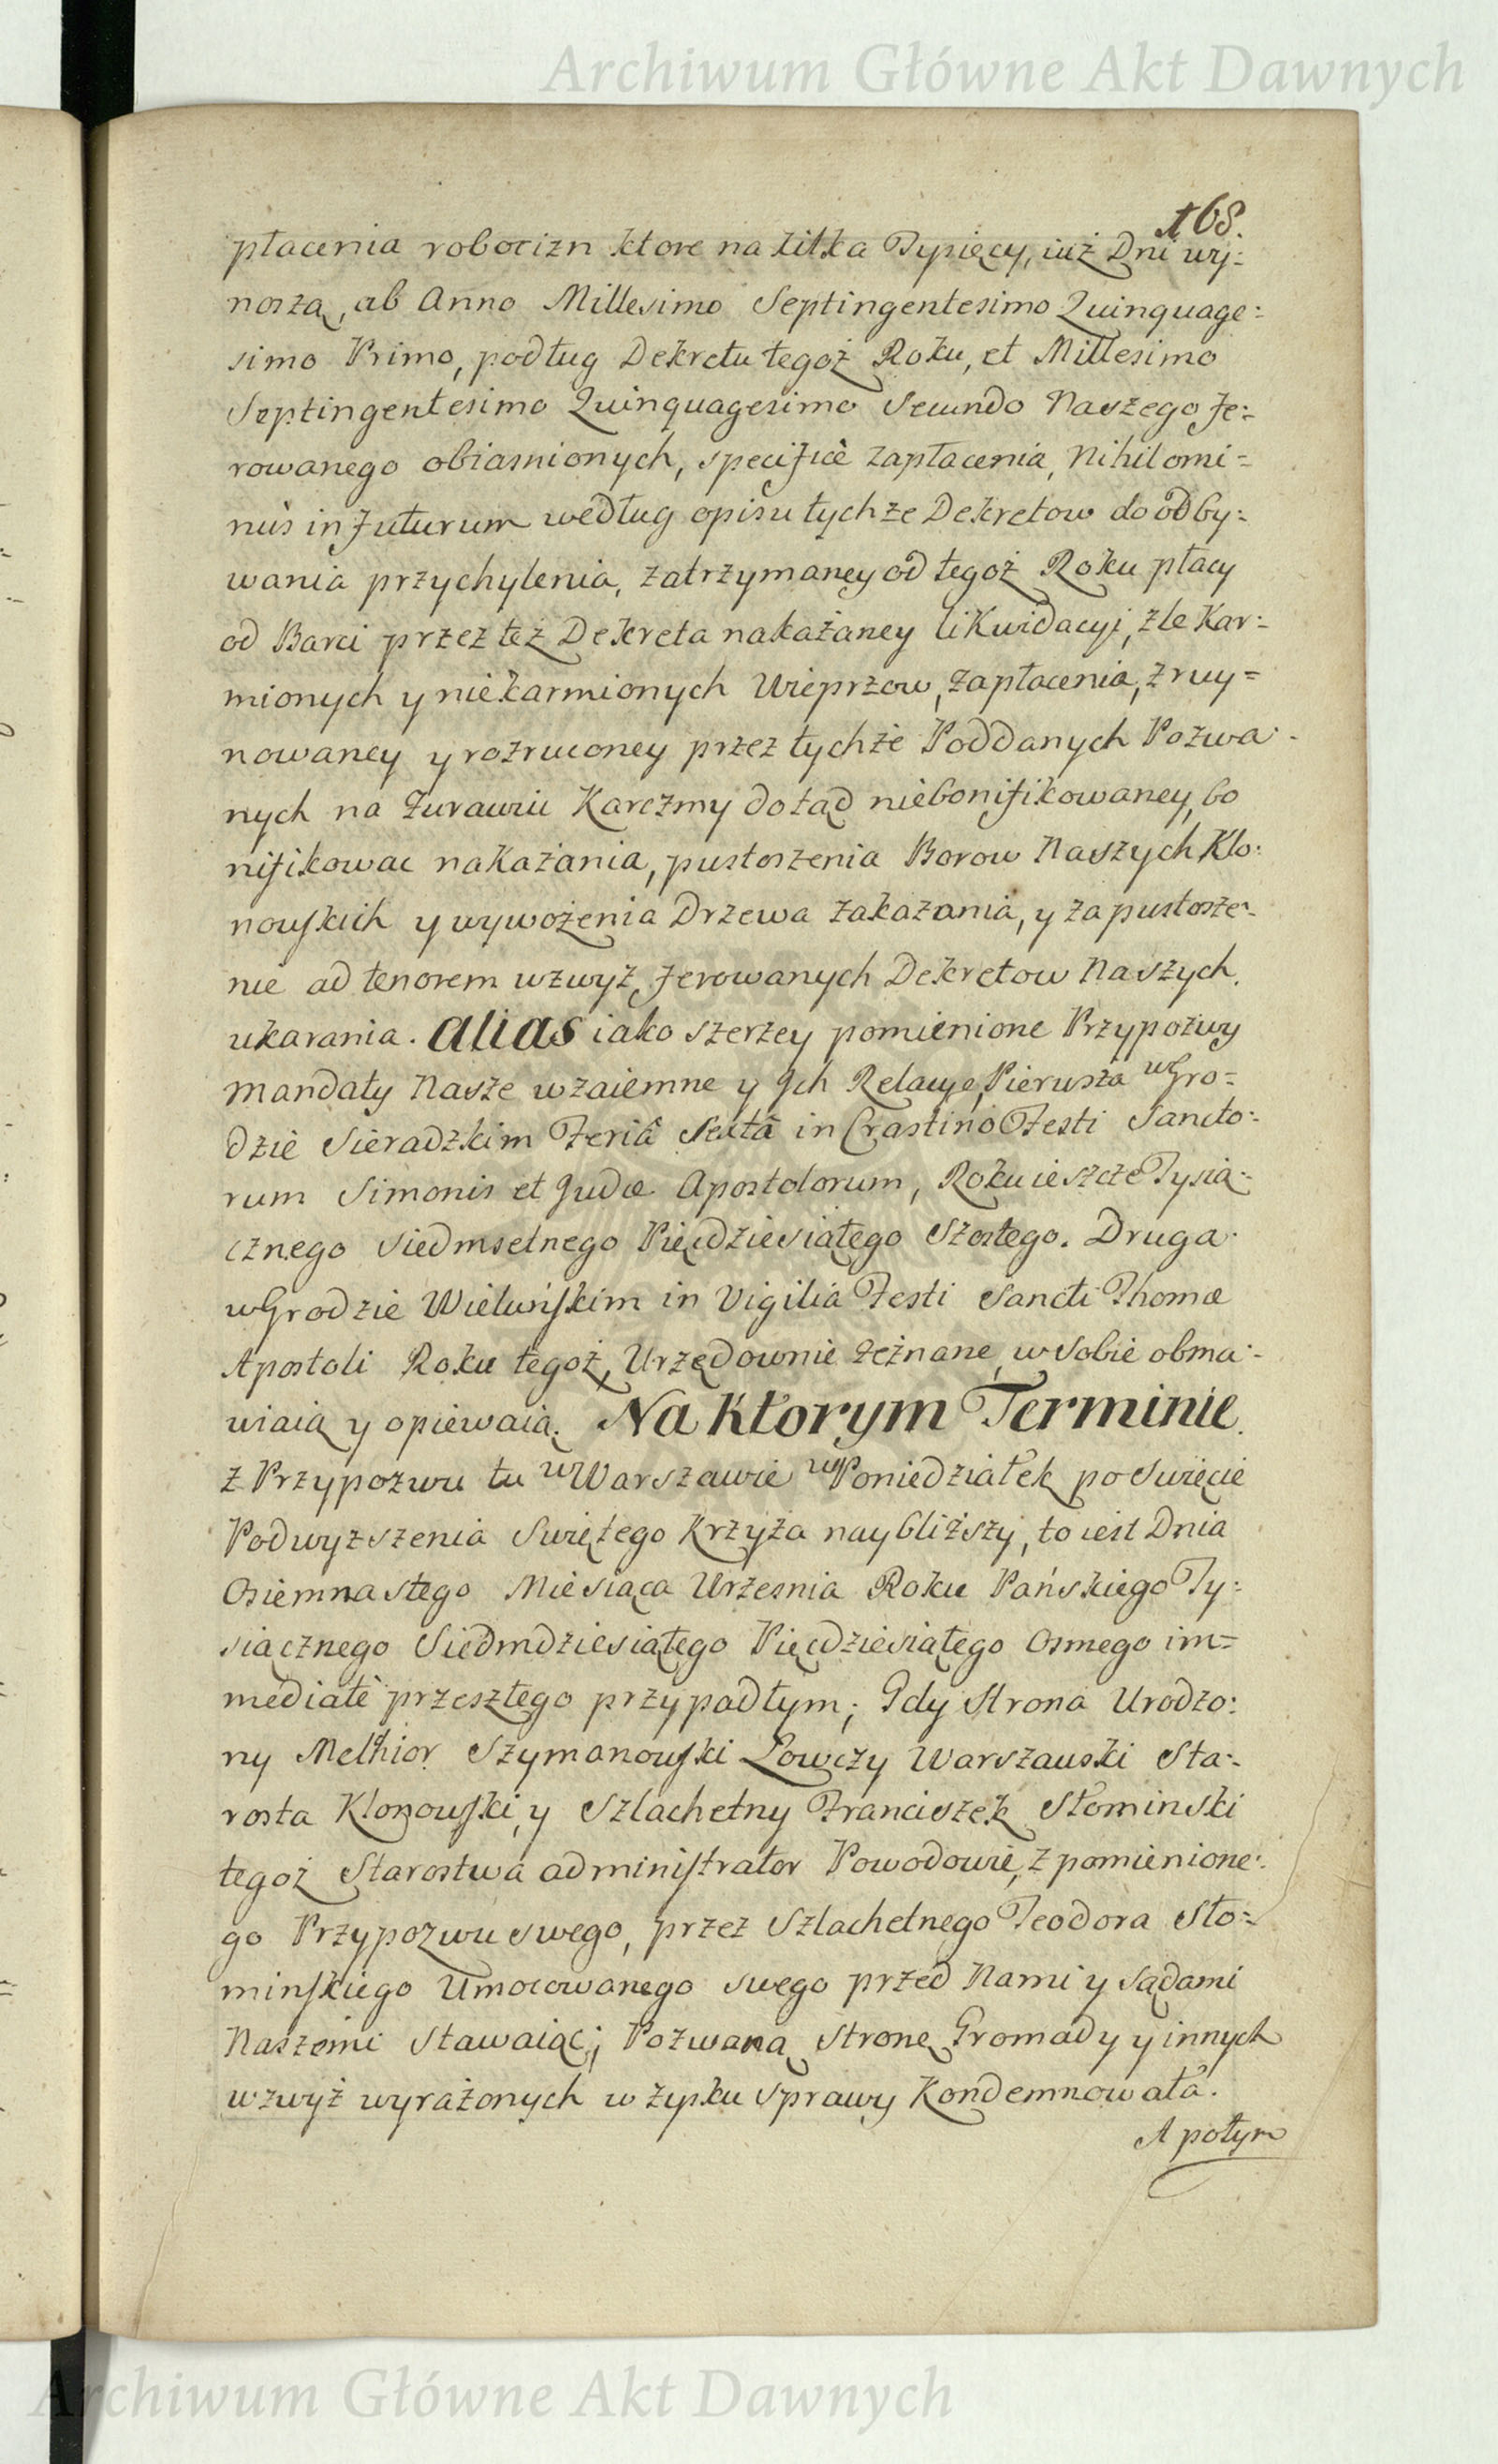 Archiwum Główne Akt Dawnych
168.
płacenia robocizn ktore na kilka Tysięcy, iuż Dni wy:
noszą, ab Anno Millesimo Septingentesimo Quinquage:
simo Primo, podług Dekretu tegoż Roku, et Millesimo
Septingentesimo Quinquagesimo Secundo Naszego fe:
rowanego obiasnionych, specificè zapłacenia, Nihilomi=
nùs in futurum według opisu tychże Dekretow do odby:
wania przychylenia, zatrzymaney od tegoż Roku płacy
od Barci przez też Dekreta nakażaney likwidacyi, źle Kar:
mionych y niekarmionych Wieprzow, zapłacenia, zruy=
nowaney y rozruconey przez tychże Poddanych Pozwa:
nych na Żurawiu Karczmy dotąd niebonifikowaney, bo
nifikowac nakażania, pustoszenia Borow Naszych Klo:
nowskich y wywożenia Drzewa zakazania, y za pustosze:
nie ad tenorem wzwyż, ferowanych Dekretow Naszych.
ukarania. Alias iako szerzey pomienione Przypozwy
Mandaty Nasze wzaiemne y Ich Relacye, Pierwsza w Gro=
dzie Sieradzkim Feriâ Sextâ in Crastino Festi Sancto:
rum Simonis et Judæ Apostolorum, Roku ieszcze Tysią:
cznego siedmsetnego Pięćdziesiątego Szostego. Druga
w Grodzie Wieluńskim in Vigilia Festi Sancti Thomæ
Apostoli Roku tegoż, Urzędownie zeżnane, w sobie obma:
wiaią y opiewaią. Na ktorym Terminie.
z Przypozwu tu w Warszawie w Poniedziałek po Swięcie
Podwyzszenia Swiętego Krzyża naybliższy, to iest Dnia
Osiemnastego Miesiąca Wrzesnia Roku Pańskiego Ty:
siącznego Siedmdziesiątego Pięćdziesiątego Osmego im=
mediatè przeszłego przypadłym; Gdy Strona Urodzo:
ny Melhior Szymanowski Łowczy Warszawski Sta:
rosta Klonowski, y Szlachetny Franciszek Słominski
tegoż Starostwa administrator Powodowie, z pomienione:
go Przypozwu swego, przez Szlachetnego Teodora Sło=
minskiego Umocowanego swego przed Nami y Sądami
Naszemi stawaiąc; Pozwaną Stronę Gromady y innych
wzwyż wyrażonych w zysku Sprawy Kondemnowała.
A potym
Archiwum Główne Akt Dawnych